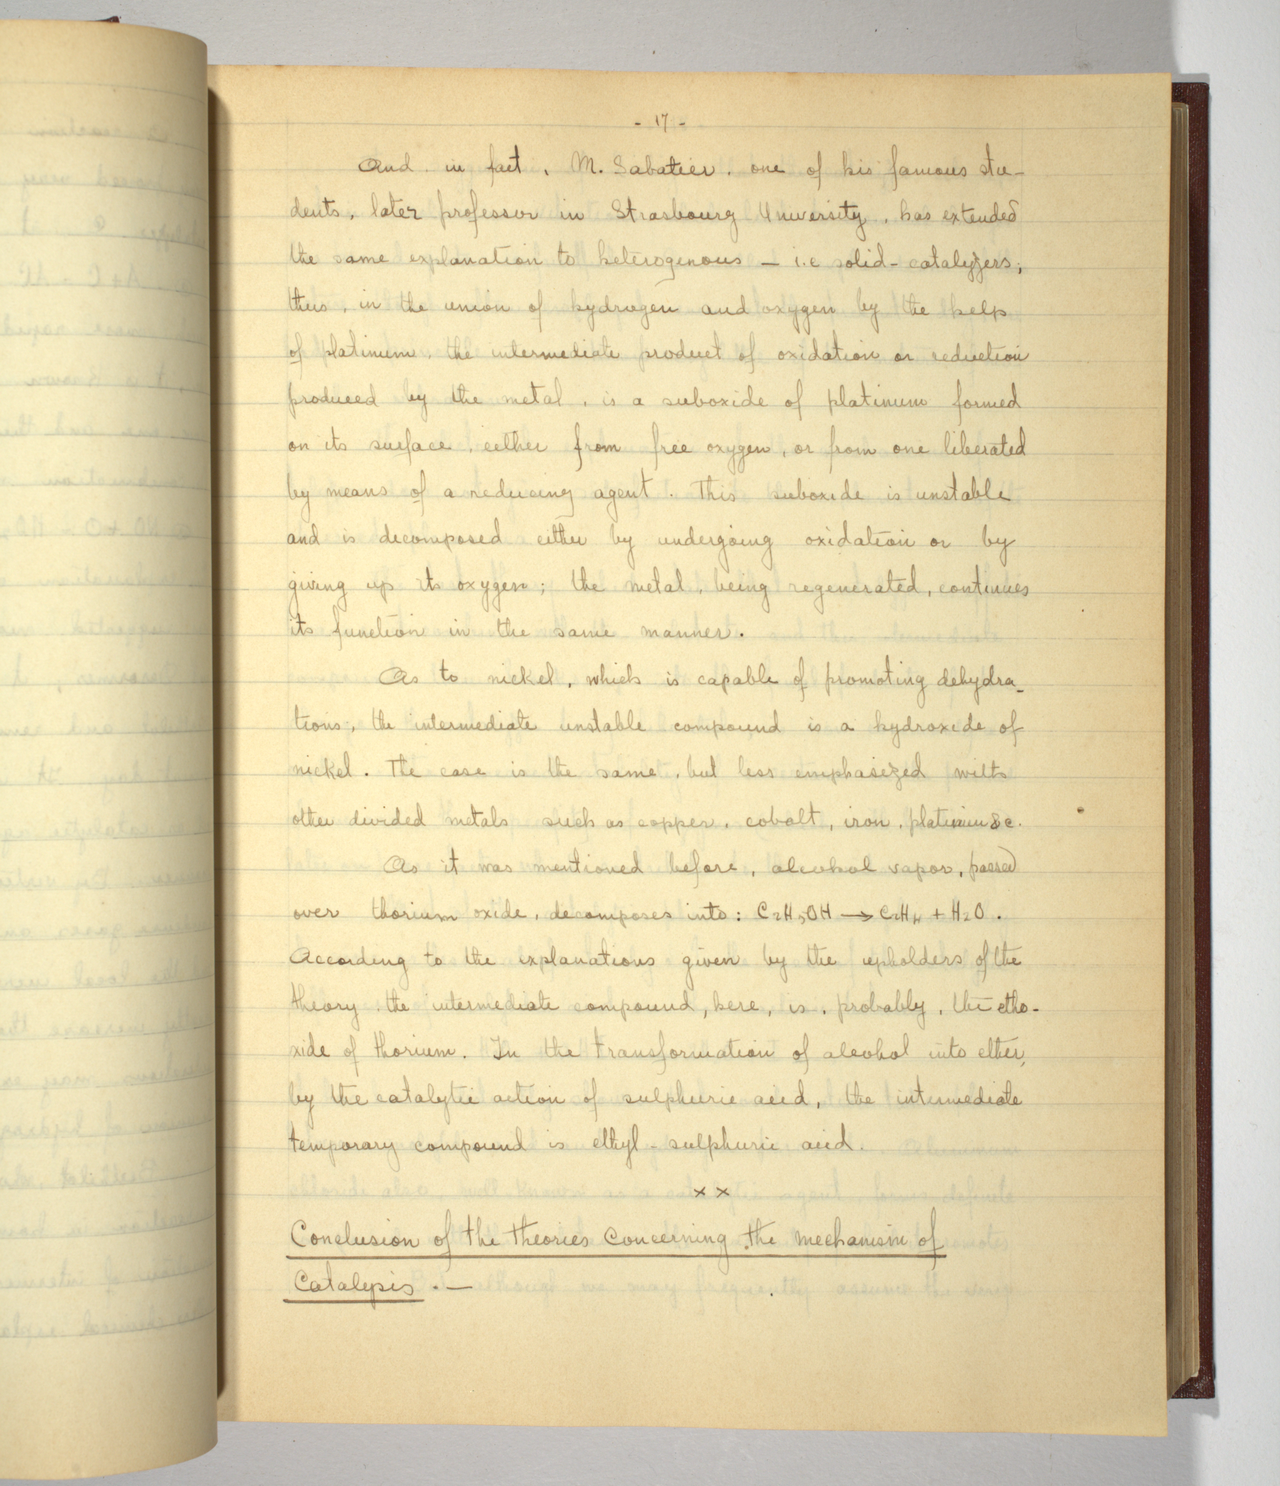 - 17 -
And in fact, M. Sabatier, one of his famous stu-
dents, later professor in Strasbourg University, has extended
the same explanation to heterogenous — i.e solid - catalyzers;
thus, in the union of hydrogen and oxygen by the help
of platinum, the intermediate product of oxidation or reduction
produced by the metal, is a suboxide of platinum formed
on its surface, either from free oxygen, or from one liberated
by means of a reducing agent. This suboxide is unstable
and is decomposed either by undergoing oxidation or by
giving up its oxygen; the metal, being regenerated, continues
its function in the same manner.
As to nickel, which is capable of promoting dehydra-
tions, the intermediate unstable compound is a hydroxide of
nickel. The case is the same, but less emphasized with
other divided metals such as copper, cobalt, iron, platinium &c.
As it was mentioned before, alcohol vapor, passed
over thorium oxide, decomposes into: C2H5OH → C2H4 + H2O.
According to the explanations given by the upholders of the
theory the intermediate compound, here, is, probably, the etho-
xide of thorium. In the transformation of alcohol into ether,
by the catalytic action of sulphuric acid, the intermediate
temporary compound is ethyl-sulphuric acid.
x x
Conclusion of the theories concerning the mechanism of
Catalysis . —